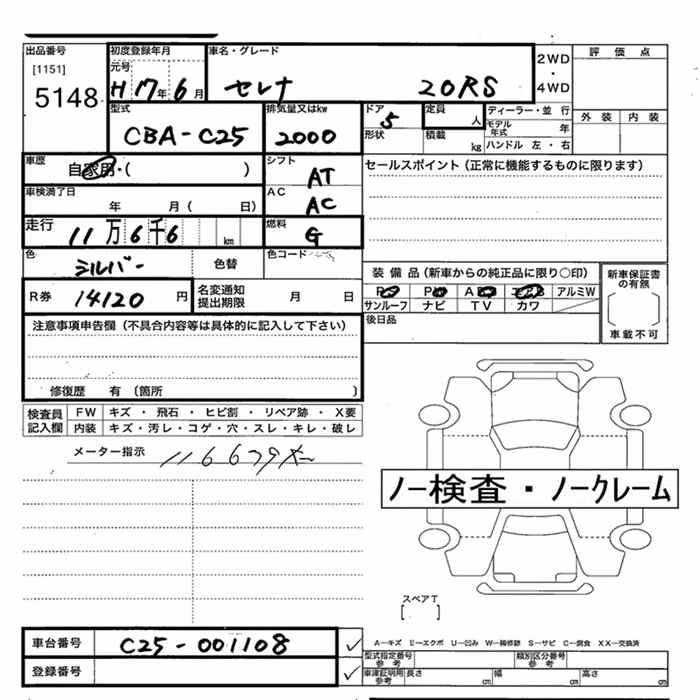 出品番号 初度登録年月 車名・グレード 評価点
[1151] 元号 2WD
5148 H17年6月 セレナ 20RS ・4WD
型式 排気量又はkw ドア 定員 ディーラー・並行 外装 内装
CBA-C25 2000 5 人 モデル年式 年
形状 積載 kg ハンドル 左・右
車歴 自家用・( ) シフト AT セールスポイント（正常に機能するものに限ります）
車検満了日 年 月( 日) AC AC
走行 11万6千6 km 燃料 G
色 シルバー 色替 色コード
装備品（新車からの純正品に限り○印） 新車保証書の有無
R券 14120円 名変通知提出期限 月 日 アルミW
サンルーフ ナビ TV カワ
注意事項申告欄（不具合内容等は具体的に記入して下さい） 後日品 車載不可
修復歴 有（箇所 ）
検査員記入欄 FW キズ・飛石・ヒビ割・リペア跡・X要
内装 キズ・汚レ・コゲ・穴・スレ・キレ・破レ
メーター指示
ノー検査・ノークレーム
スペアT
[ ]
車台番号 C25-001108 A－キズ E－エクボ U－凹み W－補修跡 S－サビ C－腐食 XX－交換済
型式指定番号 参考 類別区分番号 参考
登録番号 車津証明用 参考 長さ cm 幅 cm 高さ cm